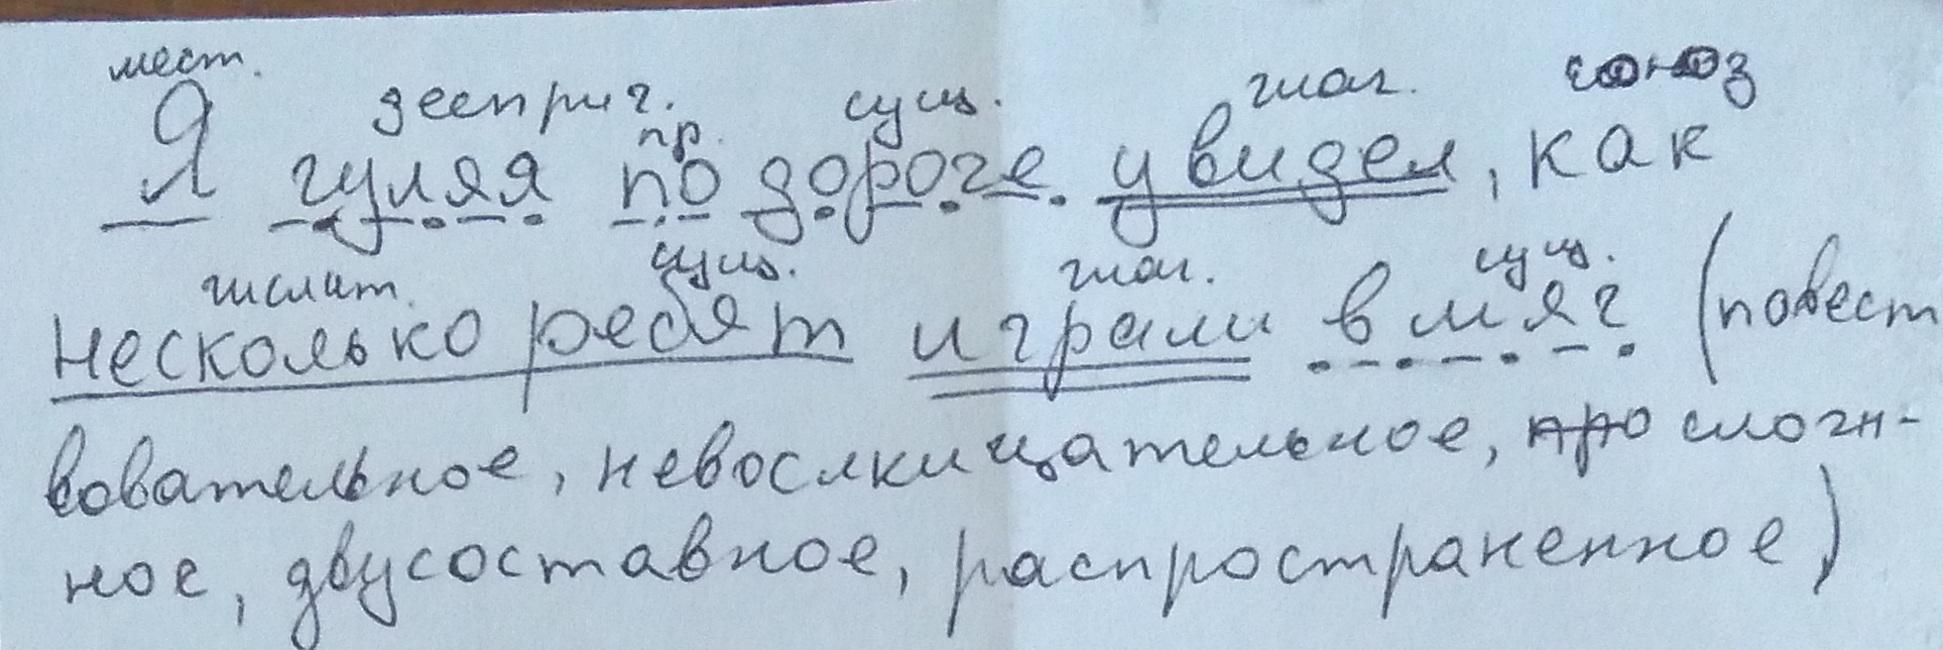 мест.
дееприч. сущ. глаг. союз
пр.
Я гуляя по дороге увидел, как
числит. сущ. глаг. сущ.
несколько ребят играли в мяч (повест
вовательное, невослкицательное, про сложн-
ное, двусоставное, распространенное)